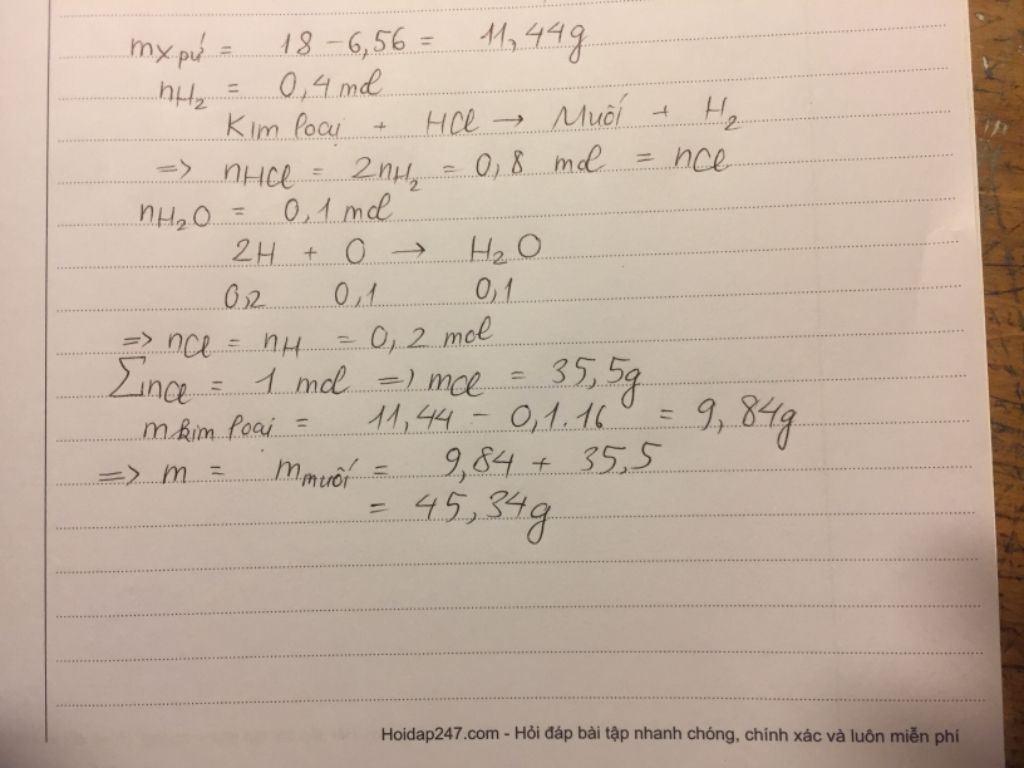 mX pứ = 18 - 6,56 = 11,44g
nH₂ = 0,4 mol
Kim loại + HCl → Muối + H₂
=> nHCl = 2nH₂ = 0,8 mol = nCl
nH₂O = 0,1 mol
2H + O → H₂O
0,2 0,1 0,1
=> nCl = nH = 0,2 mol
∑nCl = 1 mol => mCl = 35,5g
mkim loại = 11,44 - 0,1.16 = 9,84g
=> m = mmuối = 9,84 + 35,5
= 45,34g
Hoidap247.com - Hỏi đáp bài tập nhanh chóng, chính xác và luôn miễn phí